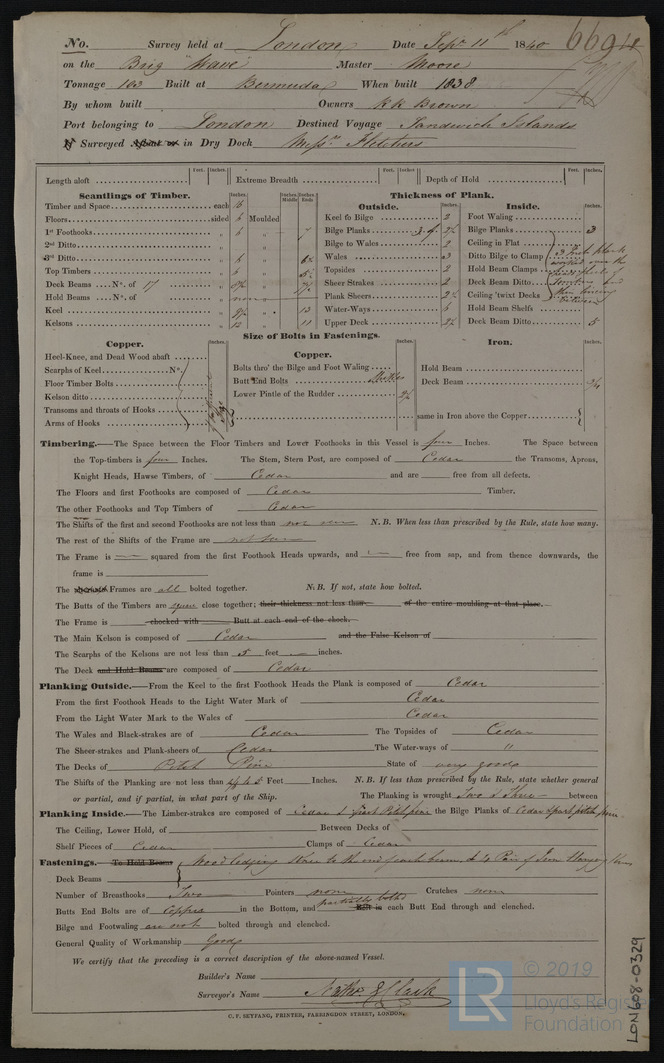 No. Survey held at London Date Sepr 11th 1840 6694
on the Brig Master Moore
Tonnage 103 Built at Bermuda When built 1838
By whom built Owners Brown
Port belonging to London Destined Voyage Sandwich Islands
Surveyed Afloat or in Dry Dock Messrs Fletchers
Length aloft Feet. Inches. Extreme Breadth Feet. Inches. Depth of Hold Feet. Inches.
Scantlings of Timber. Thickness of Plank.
Inches. Inches. Middle Inches. Ends Outside. Inches. Inside. Inches.
Timber and Space each 16 Keel to Bilge 2 Foot Waling
Floors sided 6 Moulded Bilge Planks Bilge Planks 3
1st Foothooks „ 6 „ 7 Bilge to Wales 2 Ceiling in Flat
2nd Ditto „ „ Wales 3 Ditto Bilge to Clamp
3rd Ditto „ 6 „ Topsides 2 Hold Beam Clamps
Top Timbers „ „ Sheer Strakes 2 Deck Beam Ditto
Deck Beams No. of 17 „ „ Plank Sheers Ceiling 'twixt Decks
Hold Beams No. of „ „ Water-Ways 6 Hold Beam Shelfs
Keel „ „ 13 Upper Deck Deck Beam Ditto 5
Kelsons „ „ 11
Size of Bolts in Fastenings.
Copper. Inches. Copper. Inches. Iron. Inches.
Heel-Knee, and Dead Wood abaft
Scarphs of Keel No. Bolts thro' the Bilge and Foot Waling Hold Beam
Floor Timber Bolts Butt End Bolts Deck Beam
Kelson ditto Lower Pintle of the Rudder
Transoms and throats of Hooks
Arms of Hooks same in Iron above the Copper
Timbering.—The Space between the Floor Timbers and Lower Foothooks in this Vessel is four Inches. The Space between
the Top-timbers is four Inches. The Stem, Stern Post, are composed of Cedar the Transoms, Aprons,
Knight Heads, Hawse Timbers, of Cedar and are free from all defects.
The Floors and first Foothooks are composed of Cedar Timber.
The other Foothooks and Top Timbers of Cedar
The Shifts of the first and second Foothooks are not less than not seen N.B. When less than prescribed by the Rule, state how many.
The rest of the Shifts of the Frame are not seen
The Frame is squared from the first Foothook Heads upwards, and free from sap, and from thence downwards, the
frame is
The Frames are all bolted together. N.B. If not, state how bolted.
The Butts of the Timbers are square close together; their thickness not less than of the entire moulding at that place.
The Frame is chocked with Butt at each end of the chock.
The Main Kelson is composed of Cedar and the False Kelson of
The Scarphs of the Kelsons are not less than 5 feet inches.
The Deck and Hold Beams are composed of Cedar
Planking Outside.—From the Keel to the first Foothook Heads the Plank is composed of Cedar
From the first Foothook Heads to the Light Water Mark of Cedar
From the Light Water Mark to the Wales of Cedar
The Wales and Black-strakes are of Cedar The Topsides of Cedar
The Sheer-strakes and Plank-sheers of Cedar The Water-ways of "
The Decks of Pitch Pine State of very good
The Shifts of the Planking are not less than 4 to 5 Feet Inches. N.B. If less than prescribed by the Rule, state whether general
or partial, and if partial, in what part of the Ship. The Planking is wrought Two & Three between
Planking Inside.—The Limber-strakes are composed of Cedar & part Pitch pine the Bilge Planks of Cedar & part pitch pine.
The Ceiling, Lower Hold, of Between Decks of
Shelf Pieces of Cedar Clamps of Cedar
Fastenings.—To Hold Beams Wood lodging knees to the end of each beam, & 10 Pair of Iron Hanging Knees
Deck Beams
Number of Breasthooks Two Pointers none Crutches none
Butts End Bolts are of Copper in the Bottom, and partially bolts Bolt in each Butt End through and clenched.
Bilge and Footwaling are not bolted through and clenched.
General Quality of Workmanship Good
We certify that the preceding is a correct description of the above-named Vessel.
Builder's Name
Surveyor's Name Clark
C. F. SEYFANG, PRINTER, FARRINGDON STREET, LONDON.
LR © 2019
Lloyd's Register
Foundation
LON608-0329